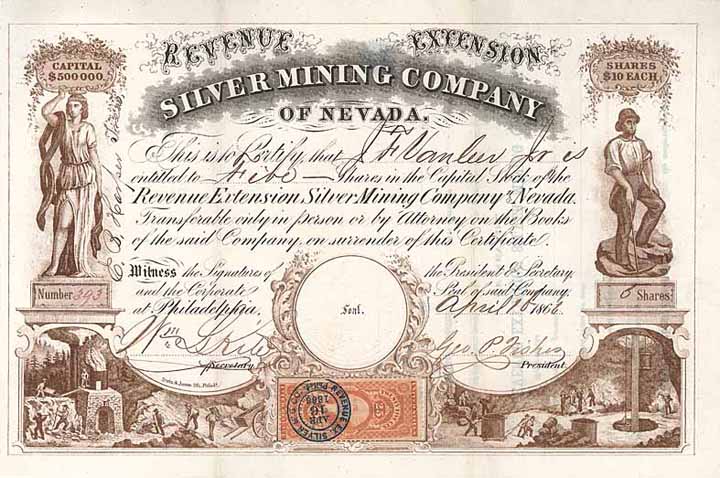 REVENUE EXTENSION
SILVER MINING COMPANY
OF NEVADA.
CAPITAL
$500000.
SHARES
$10 EACH.
This is to Certify, that J F Vanleer Jr is
entitled to Five — Shares in the Capital Stock of the
Revenue Extension Silver Mining Company of Nevada.
Transferable only in person or by Attorney on the Books
of the said Company, on surrender of this Certificate.
Witness the Signatures of the President & Secretary
and the Corporate Seal of said Company,
at Philadelphia, April 16 1866.
Seal.
Number 393
5 Shares
Wm
Secretary
Geo. P.
President.
REVENUE EX. SILVER MG CO.
APR
16
1866
PHILA